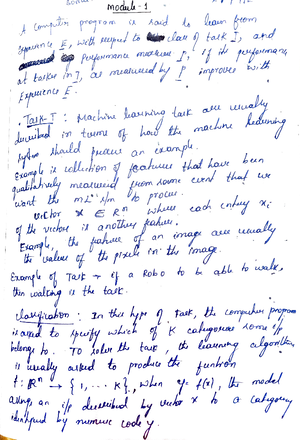 Module - 1
A computer program is said to learn from
experience E, with respect to class of task T, and
performance measure P, if its performance
at tasks in T, as measured by P improves with
Experience E.
Task T : Machine learning task are usually
described in terms of how the machine learning
system should process an example.
Example is collection of features that have been
quantitatively measured from some event that we
want the ML s/m to process.
vector x ∈ Rⁿ where each entry xi
of the vector is another feature.
Example, the features of an image are usually
the values of the pixels in the image.
Example of Task → if a Robo to be able to walk,
then walking is the task.
Classification : In this type of task, the computer program
is asked to specify which of K categories some i/p
belongs to. To solve the task, the learning algorithm
is usually asked to produce the function
f: Rⁿ → {1, ... K}, when y = f(x), the model
assigns an i/p described by vector x to a category
identified by numeric code y.